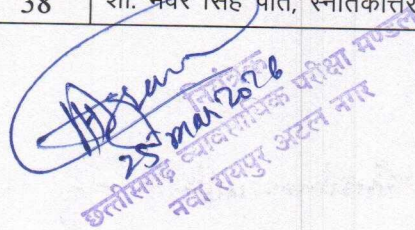 38 शा. भंवर सिंह पोर्ते, स्नातकोत्तर
25 mar 2026
नियंत्रक
छत्तीसगढ़ व्यावसायिक परीक्षा मण्डल
नवा रायपुर अटल नगर